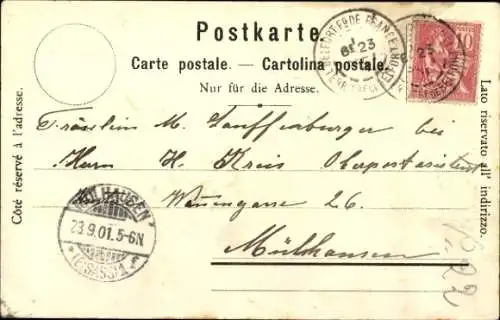 Postkarte.
Carte postale. — Cartolina postale.
Nur für die Adresse.
Côté réservé à l'adresse.
Lato riservato all' indirizzo.
BELFORT
23
10
Fräulein M. Lauffenburger bei
Herrn H. Kreis Oberpostassistent
26
Mülhausen
MÜLHAUSEN
23.9.01.5-6N
(ELSASS)1